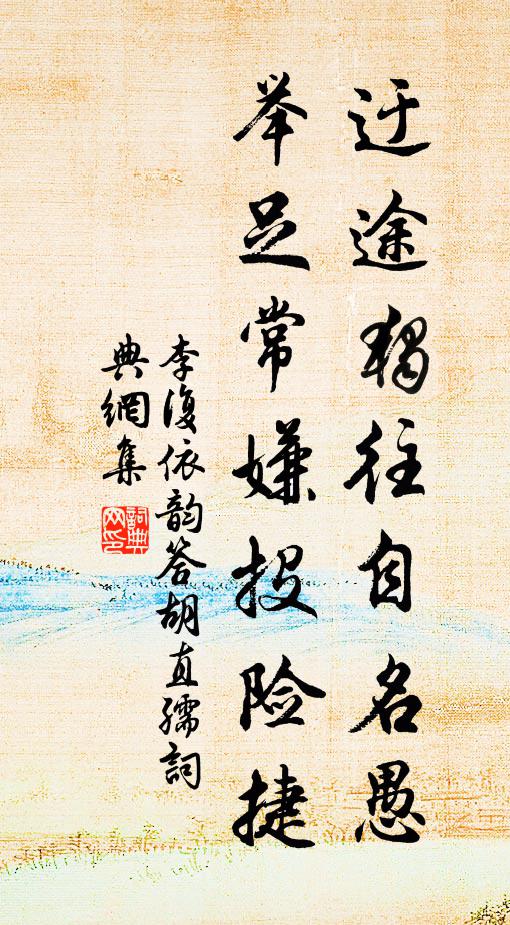 迂途独往自名愚
举足常嫌投险捷
李復依韵答胡直孺詞
典網集
詞典
网印